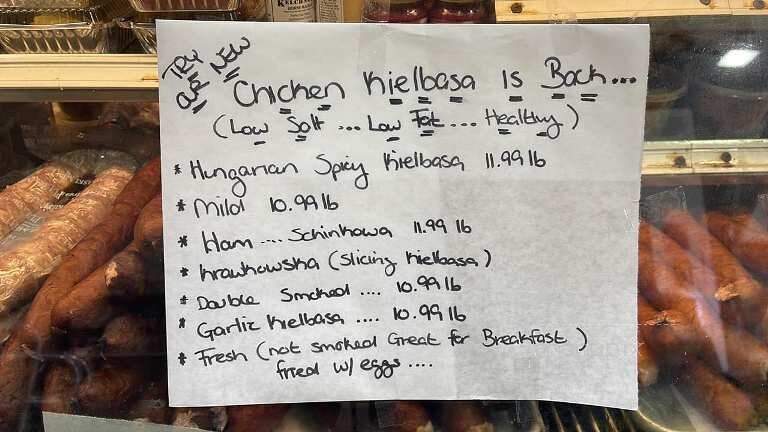 TRY
OUR NEW
Chicken Kielbasa Is Back...
(Low Salt ... Low Fat .... Healthy)
* Hungarian Spicy Kielbasa 11.99 lb
* Mild 10.99 lb
* Ham .... Schinkowa 11.99 lb
* Krawkowska (Slicing Kielbasa)
* Double Smoked .... 10.99 lb
* Garlic Kielbasa .... 10.99 lb
* Fresh (not smoked Great for Breakfast)
fried w/ eggs ....